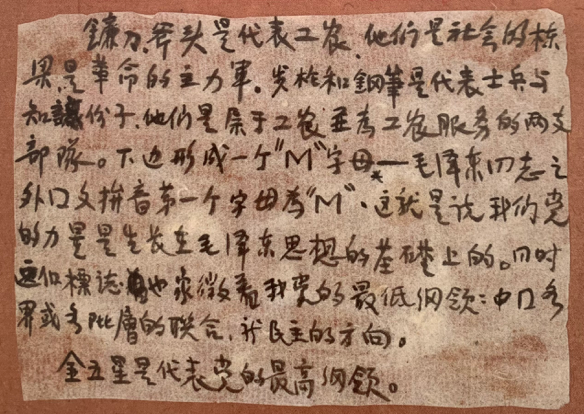 鐮刀、斧头是代表工农、他们是社会的栋
梁是革命的主力軍。炎枪和鋼筆是代表士兵与
知識份子.他们是属于工农並为工农服务的两支
部隊。下边形成一个"M"字母——毛泽东同志之
外口文拼音第一个字母为"M"、这就是说我们党
的力量是生长在毛泽东思想的基礎上的。同时
这個標誌也象徵着我党的最低纲领：中口各
界或各阶層的联合、新民主的方向。
金五星是代表党的最高纲领。